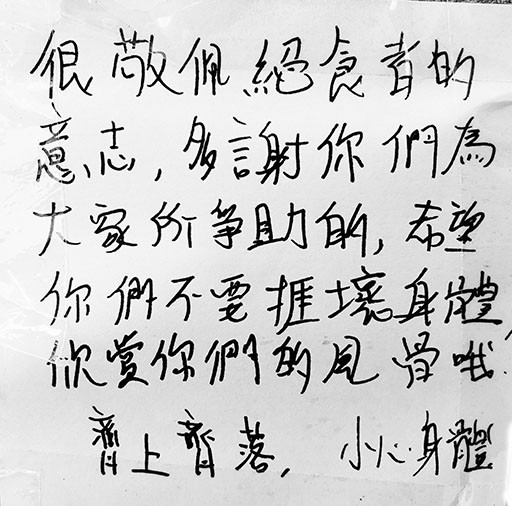 很敬佩絕食者的
意志,多謝你們為
大家所爭助的,希望
你們不要捱壞身體
欣賞你們的風骨哦!
齊上齊落,小心身體